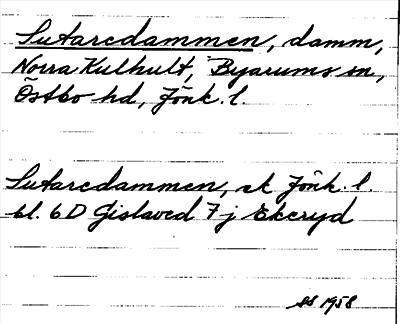 Sutaredammen, damm,
Norra Kulhult, Byarums sn,
Östbo hd, Jönk. l.
Sutaredammen, ek Jönk. l.
bl. 6D Gislaved 7j Ekeryd
1958